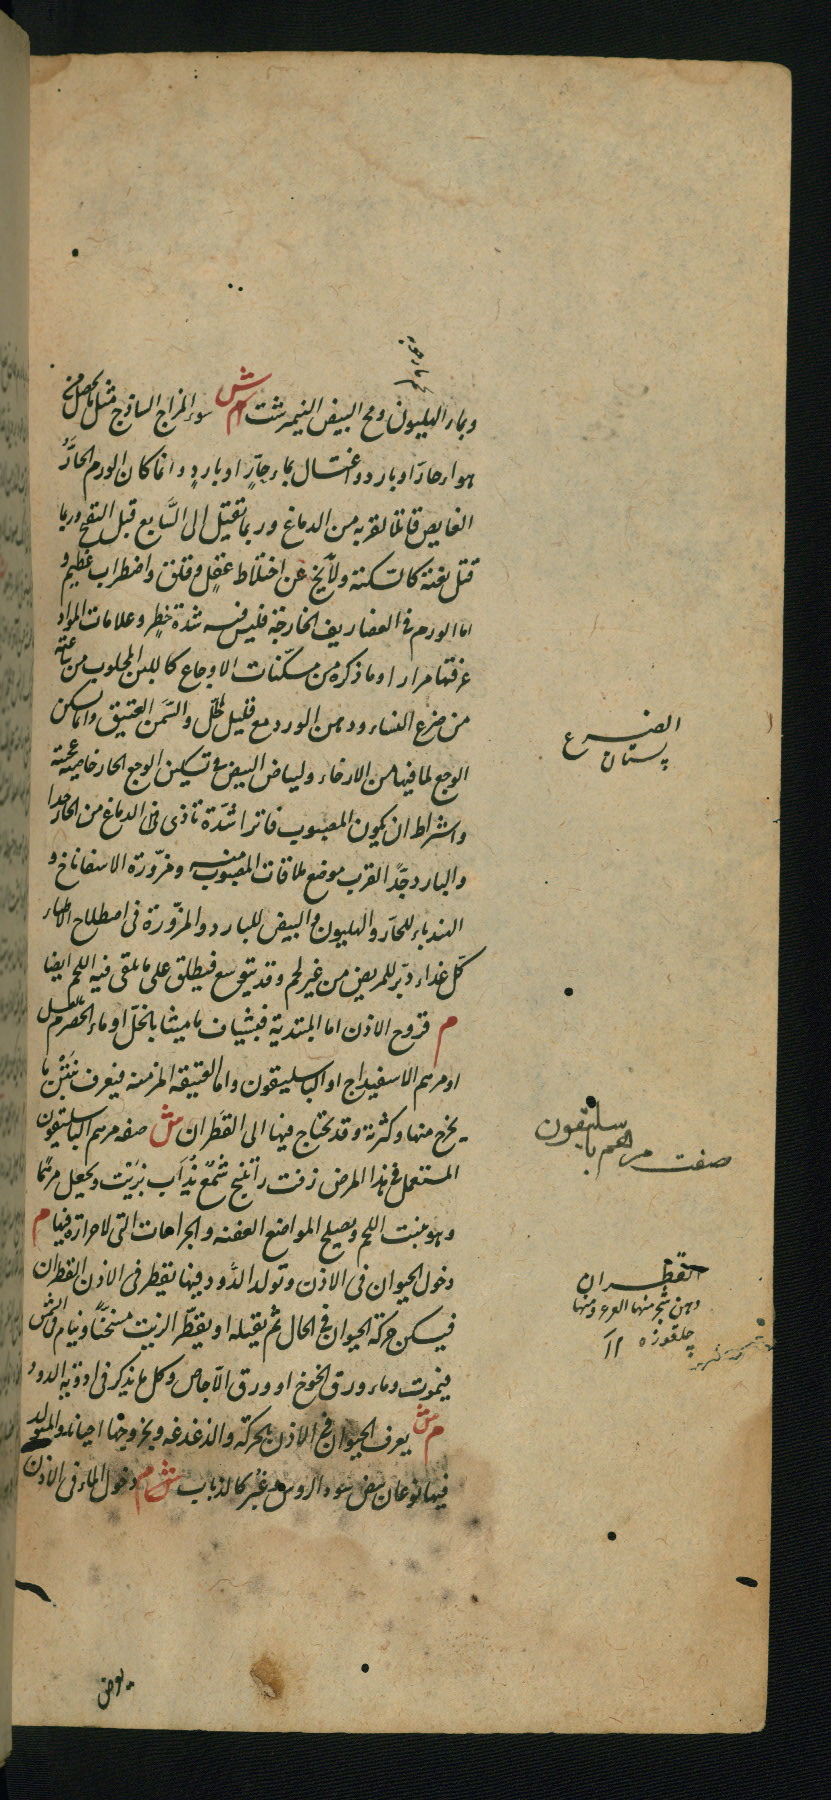 وبماء الهليون ومح البيض النيمرشت ش سوء المزاج الساذج مثل ما يحصل من
هواء حار او بارد واغتسال بماء حارّ او باردٍ وانما كان الورم الحارُّ
الغايص قاتلا لقربه من الدماغ وربما تقتيل الى السَّابع قبل التقيح وربما
قتل بغتة كالسكتة ولا يخ عن اختلاط عقل وقلق واضطراب عظيم و
اما الورم فى الغضاريف الخارجة فليس فيه شدة خطر وعلامات المواد
عرفتها مرارا وما ذكره من مسكّنات الاوجاع كاللبن المحلوب من ساعته
من ضرع النساء ودهن الورد مع قليل خلّ والسَّمن العتيق وانما يسكن
الوجع لما فيها من الارخاء ولبياض البيض فى تسكين الوجع الحار خاصية عجيبة
واشراط ان يكون المصبوب فاترا شدّة تاذى الدماغ من الحار جدا
والبارد جدًّا القرب موضع ملاقات المصبوب منه ومزّورة الاسفاناخ و
الهندباء للحارّ والهليون والبيض للبارد والمزّورة فى اصطلاح الاطباء
كلّ غذاء دبّر للمريض من غير لحم وقد يتوسع فيطلق على ما يلقى فيه اللحم ايضا
م قروح الاذن اما المبتدية فبشياف ماميثا بالخلّ او ماء الحصرم بالعسل
او مرهم الاسفيداج او الباسليقون واما العتيقه المزمنه فيعرف بنَتْن ما
يخرج منها وكثرته وقد يحتاج فيها الى القَطران مش صفه مرهم الباسليقون
المستعمل فى هذا المرض زفت راتينج شمع يُذاب بزيت ويجعل مرهمًا
وهو ينبت اللحم ويصلح المواضع العفنه والجراحات التى لا حرارة فيها م
دخول الحيوان فى الاذن وتولد الدُّود فيها يقطر فى الاذن القطران
فيسكن حركة الحيوان فى الحال ثم يقيله او يقطّر الزيت مسخنًا وينام فى الشمس
فيموت وماء ورق الخوخ او ورق الآجاص وكل ما يذكر فى ادوية الدود
م ش يعرف الحيوان فى الاذن بالحركة والدغدغه وبخروجها احيانا والمتولد
فيها نوعان بيض سود الروس وغبُر كالذباب ش م دخول الماء فى الاذن
الضرع
پستان
صفت مرهم باسليقون
القطران
چلغوزه
يعرض